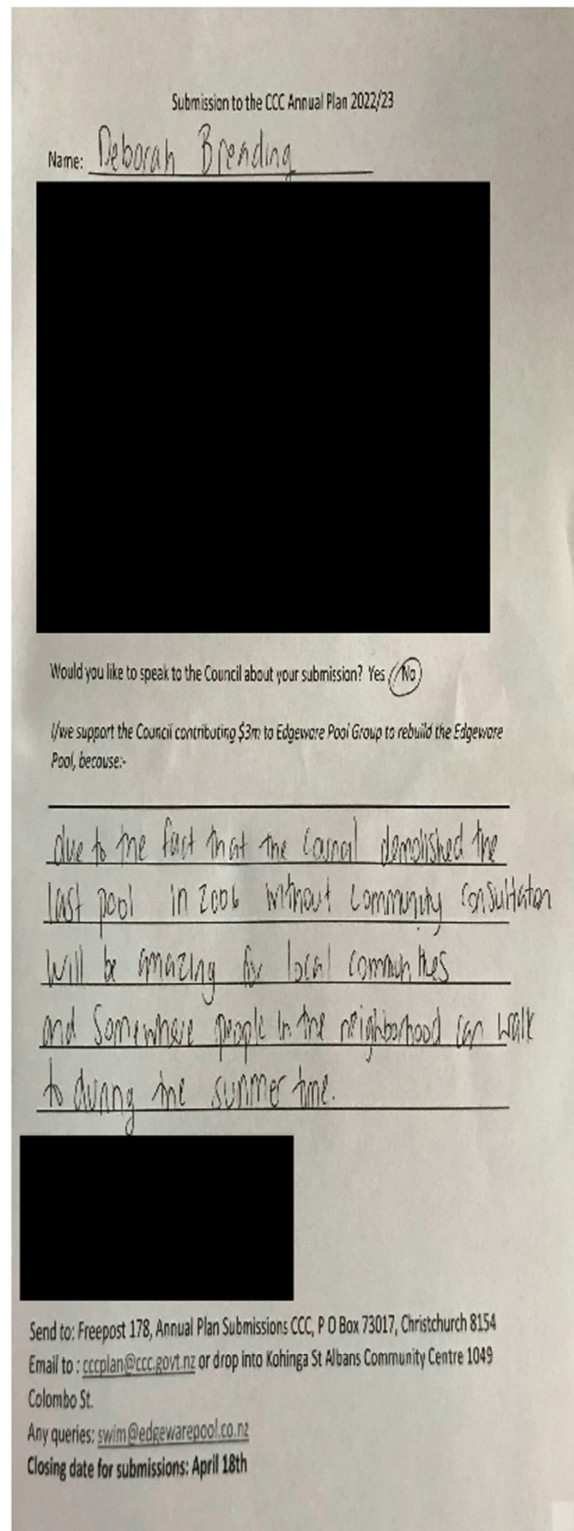 Submission to the CCC Annual Plan 2022/23
Name: Deborah Brending
Would you like to speak to the Council about your submission? Yes / No
I/we support the Council contributing $3m to Edgeware Pool Group to rebuild the Edgeware
Pool, because:-
due to the fact that the Council demolished the
last pool in 2006 without community consultation
will be amazing for local communities
and somewhere people in the neighborhood can walk
to during the summer time.
Send to: Freepost 178, Annual Plan Submissions CCC, P O Box 73017, Christchurch 8154
Email to : cccplan@ccc.govt.nz or drop into Kohinga St Albans Community Centre 1049
Colombo St.
Any queries: swim@edgewarepool.co.nz
Closing date for submissions: April 18th